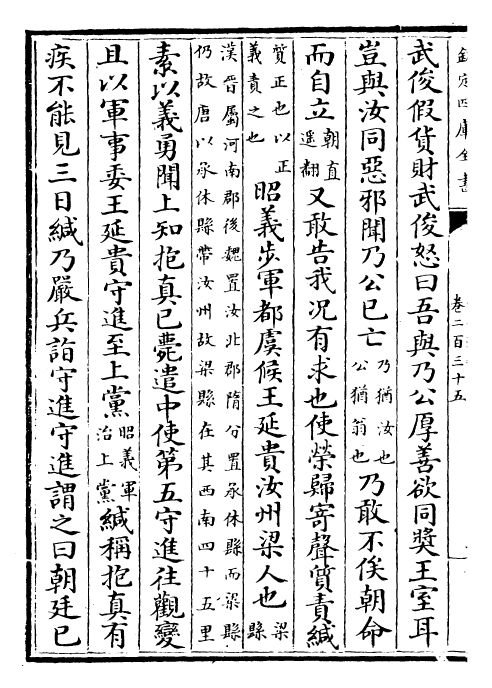 欽定四庫全書
卷二百三十五
武俊假貨財武俊怒曰吾與乃公厚善欲同奬王室耳
豈與汝同惡邪聞乃公已亡乃猶汝也公猶翁也乃敢不俟朝命
而自立朝直遥翻又敢告我况有求也使榮歸寄聲質責緘
質正也以正義責之也昭義步軍都虞候王延貴汝州梁人也梁縣
漢晉屬河南郡後魏置汝北郡隋分置承休縣而梁縣
仍故唐以承休縣帶汝州故梁縣在其西南四十五里
素以義勇聞上知抱真已薨遣中使第五守進往觀變
且以軍事委王延貴守進至上黨昭義軍治上黨緘稱抱真有
疾不能見三日緘乃嚴兵詣守進守進謂之曰朝廷已